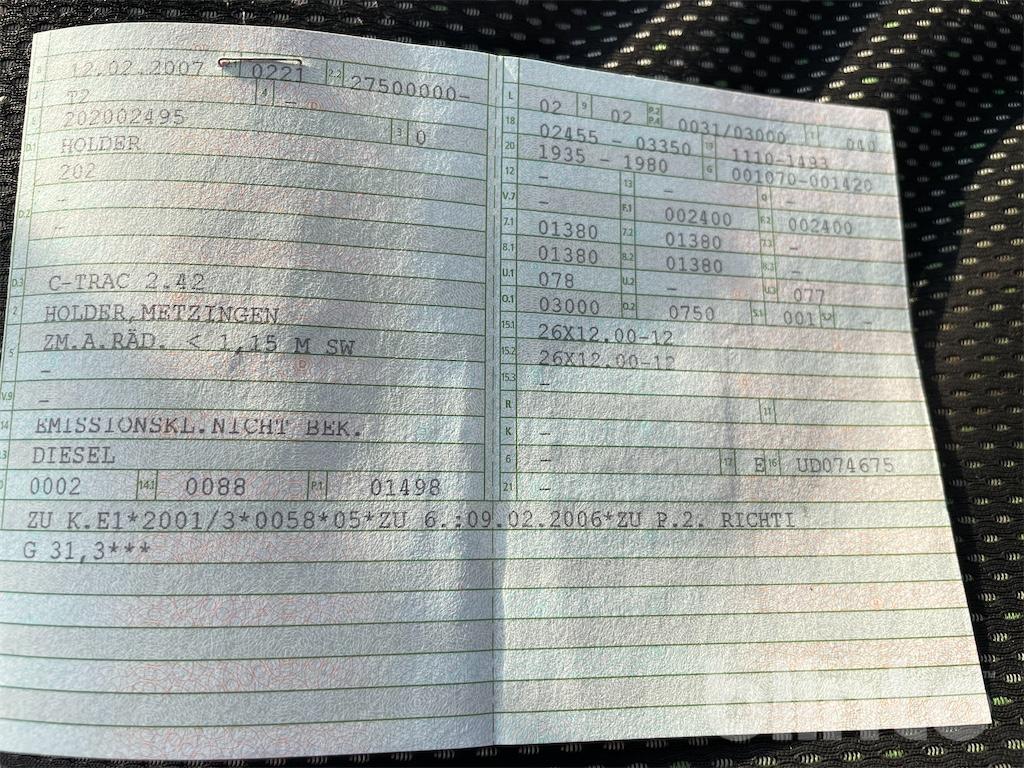 B 12.02.2007 0221 2.2 27500000-
J T2 4 -
E 202002495 3 0
D.1 HOLDER
202
D.2 -
-
D.3 C-TRAC 2.42
2 HOLDER,METZINGEN
5 ZM.A.RÄD. < 1,15 M SW
-
V.9 -
14 EMISSIONSKL.NICHT BEK.
P.3 DIESEL
10 0002 14.1 0088 P.1 01498
L 02 9 02 P.2 P.4 0031/03000 T 040
18 02455 - 03350 19 1110-1493
20 1935 - 1980 G 001070-001420
12 - 13 - Q -
V.7 - F.1 002400 F.2 002400
7.1 01380 7.2 01380 7.3 -
8.1 01380 8.2 01380 8.3 -
U.1 078 U.2 - U.3 077
O.1 03000 O.2 0750 S.1 001 S.2 -
15.1 26X12.00-12
15.2 26X12.00-12
15.3 -
R 11
K -
6 - 17 E 16 UD074675
21 -
ZU K.E1*2001/3*0058*05*ZU 6.:09.02.2006*ZU P.2. RICHTI
G 31,3***